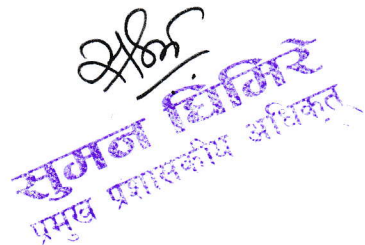 सुमन घिमिरे
प्रमुख प्रशासकीय अधिकृत